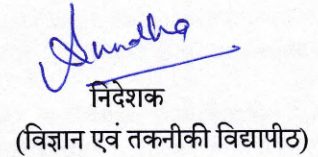 निदेशक
(विज्ञान एवं तकनीकी विद्यापीठ)